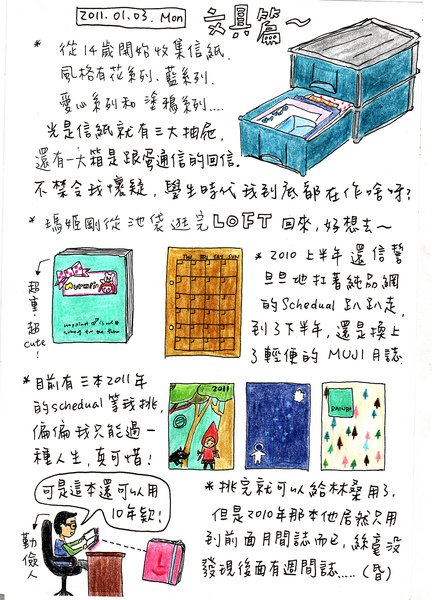 2011.01.03.Mon
文具篇～
* 從14歲開始收集信紙.
風格有花系列.藍系列.
愛心系列和塗鴉系列....
光是信紙就有三大抽屜,
還有一大箱是跟蛋通信的回信.
不禁令我懷疑, 學生時代我到底都在作啥呀?
* 瑪姬剛從池袋逛完LOFT回來,好想去～
超專!超cute!
THU FRI SAT SUN
* 2010上半年還信誓
旦旦地扛著純品網
的Schedual趴趴走,
到了下半年,還是換上
了輕便的MUJI月誌
* 目前有三本2011年
的schedual等我挑,
偏偏我只能過一
種人生,真可惜!
2011
可是這本還可以用
10年欸!
勤儉人
* 挑完就可以給林桑用了,
但是2010年那本他居然只用
到前面月間誌而已,絲毫沒
發現後面有週間誌.....(昏)